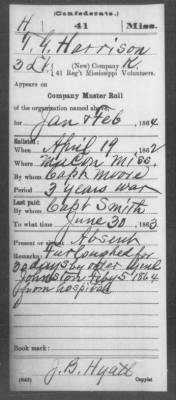 (Confederate.)
H 41 Miss.
T. G. Harrison
3 Lt., (New) Company K,
41 Reg't Mississippi Volunteers.
Appears on
Company Muster Roll
of the organization named above,
for Jan & Feb, 1864.
Enlisted:
When April 19, 1862
Where Macon Miss.
By whom Capt Moore
Period 3 years war
Last paid:
By whom Capt Smith
To what time June 30, 1863.
Present or absent Absent
Remarks: Furloughed for
30 days by order Genl
Johnston Feby 5 1864
from hospital
Book mark:
J. B. Hyatt
(642) Copyist.